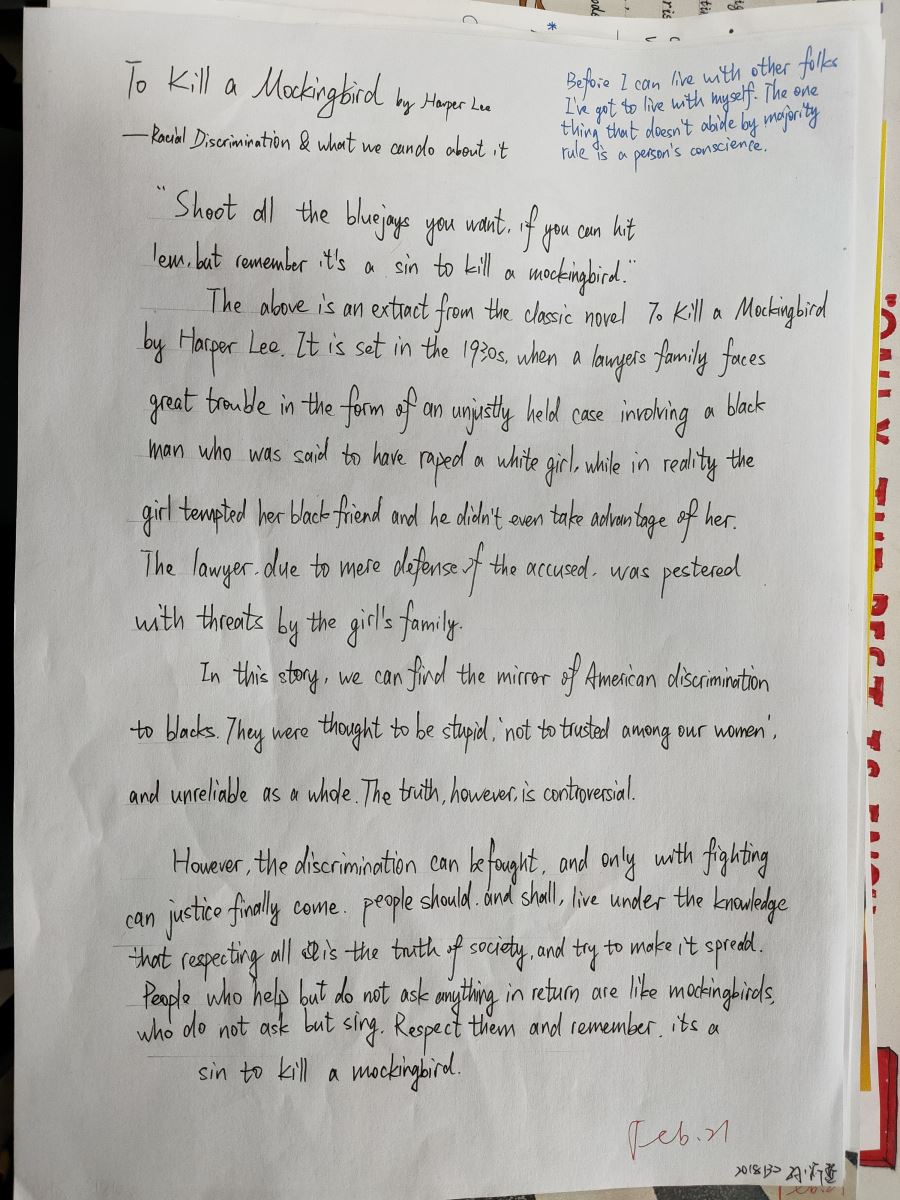 To Kill a Mockingbird by Harper Lee
—Racial Discrimination & what we can do about it
Before I can live with other folks
I've got to live with myself. The one
thing that doesn't abide by majority
rule is a person's conscience.
"Shoot all the bluejays you want, if you can hit
'em, but remember it's a sin to kill a mockingbird."
The above is an extract from the classic novel To Kill a Mockingbird
by Harper Lee. It is set in the 1930s, when a lawyers family faces
great trouble in the form of an unjustly held case involving a black
man who was said to have raped a white girl, while in reality the
girl tempted her black friend and he didn't even take advantage of her.
The lawyer, due to mere defense of the accused, was pestered
with threats by the girl's family.
In this story, we can find the mirror of American discrimination
to blacks. They were thought to be stupid, 'not to trusted among our women',
and unreliable as a whole. The truth, however, is controversial.
However, the discrimination can be fought, and only with fighting
can justice finally come. people should, and shall, live under the knowledge
that respecting all is the truth of society, and try to make it spread.
People who help but do not ask anything in return are like mockingbirds,
who do not ask but sing. Respect them and remember, its a
sin to kill a mockingbird.
Feb.21
"ONLY THE BEST IS